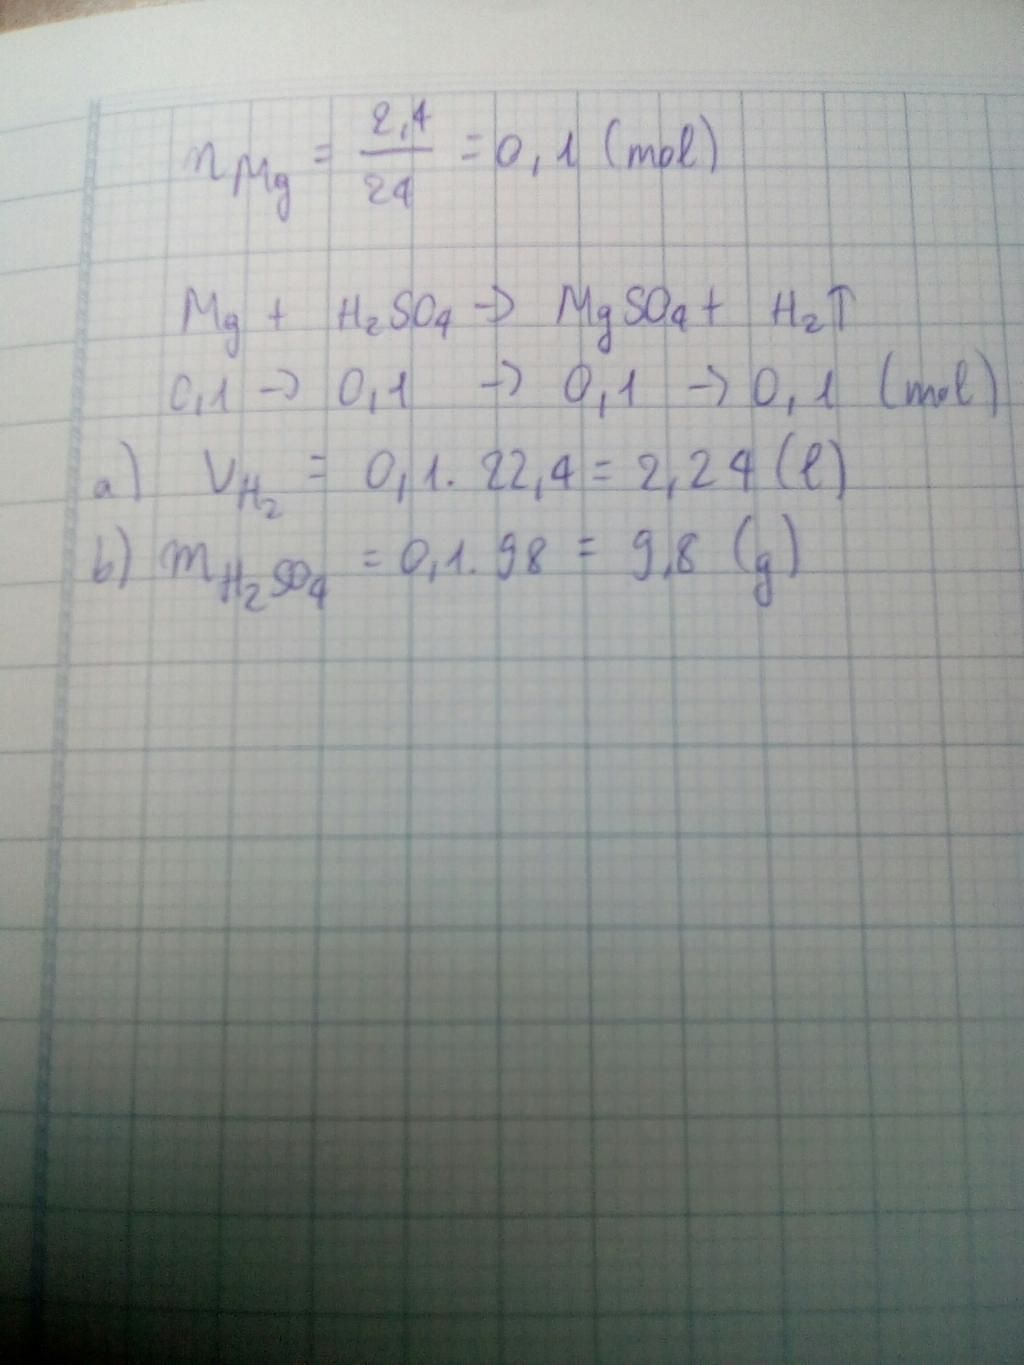 n_Mg = 2,4/24 = 0,1 (mol)
Mg + H₂SO₄ → MgSO₄ + H₂↑
0,1 → 0,1 → 0,1 → 0,1 (mol)
a) V_H₂ = 0,1 . 22,4 = 2,24 (l)
b) m_H₂SO₄ = 0,1 . 98 = 9,8 (g)